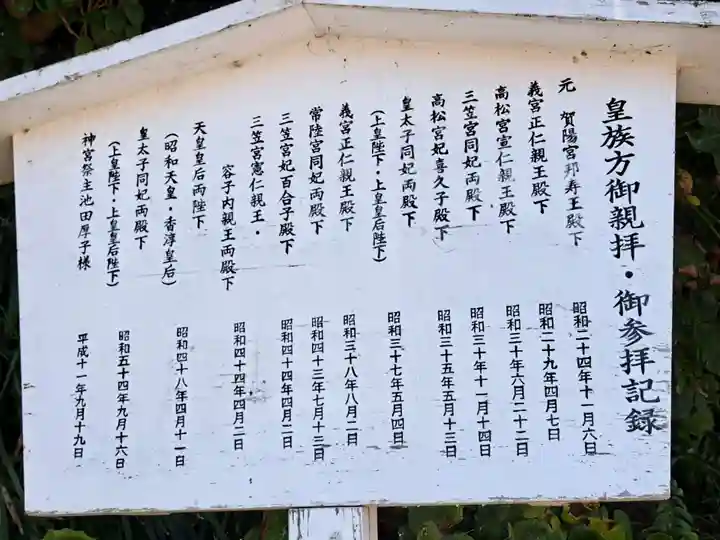 皇族方御親拝・御参拝記録
元 賀陽宮邦寿王殿下 昭和二十四年十一月六日
義宮正仁親王殿下 昭和二十九年四月七日
高松宮宣仁親王殿下 昭和三十年六月二十二日
三笠宮同妃両殿下 昭和三十年十一月十四日
高松宮妃喜久子殿下 昭和三十五年五月十三日
皇太子同妃両殿下 昭和三十七年五月四日
(上皇陛下・上皇后陛下)
義宮正仁親王殿下 昭和三十八年八月二日
常陸宮同妃両殿下 昭和四十三年七月十三日
三笠宮妃百合子殿下 昭和四十四年四月二日
三笠宮憲仁親王・
容子内親王両殿下 昭和四十四年四月二日
天皇皇后両陛下 昭和四十八年四月十一日
(昭和天皇・香淳皇后)
皇太子同妃両殿下 昭和五十四年九月十六日
(上皇陛下・上皇后陛下)
神宮祭主池田厚子様 平成十一年九月十九日